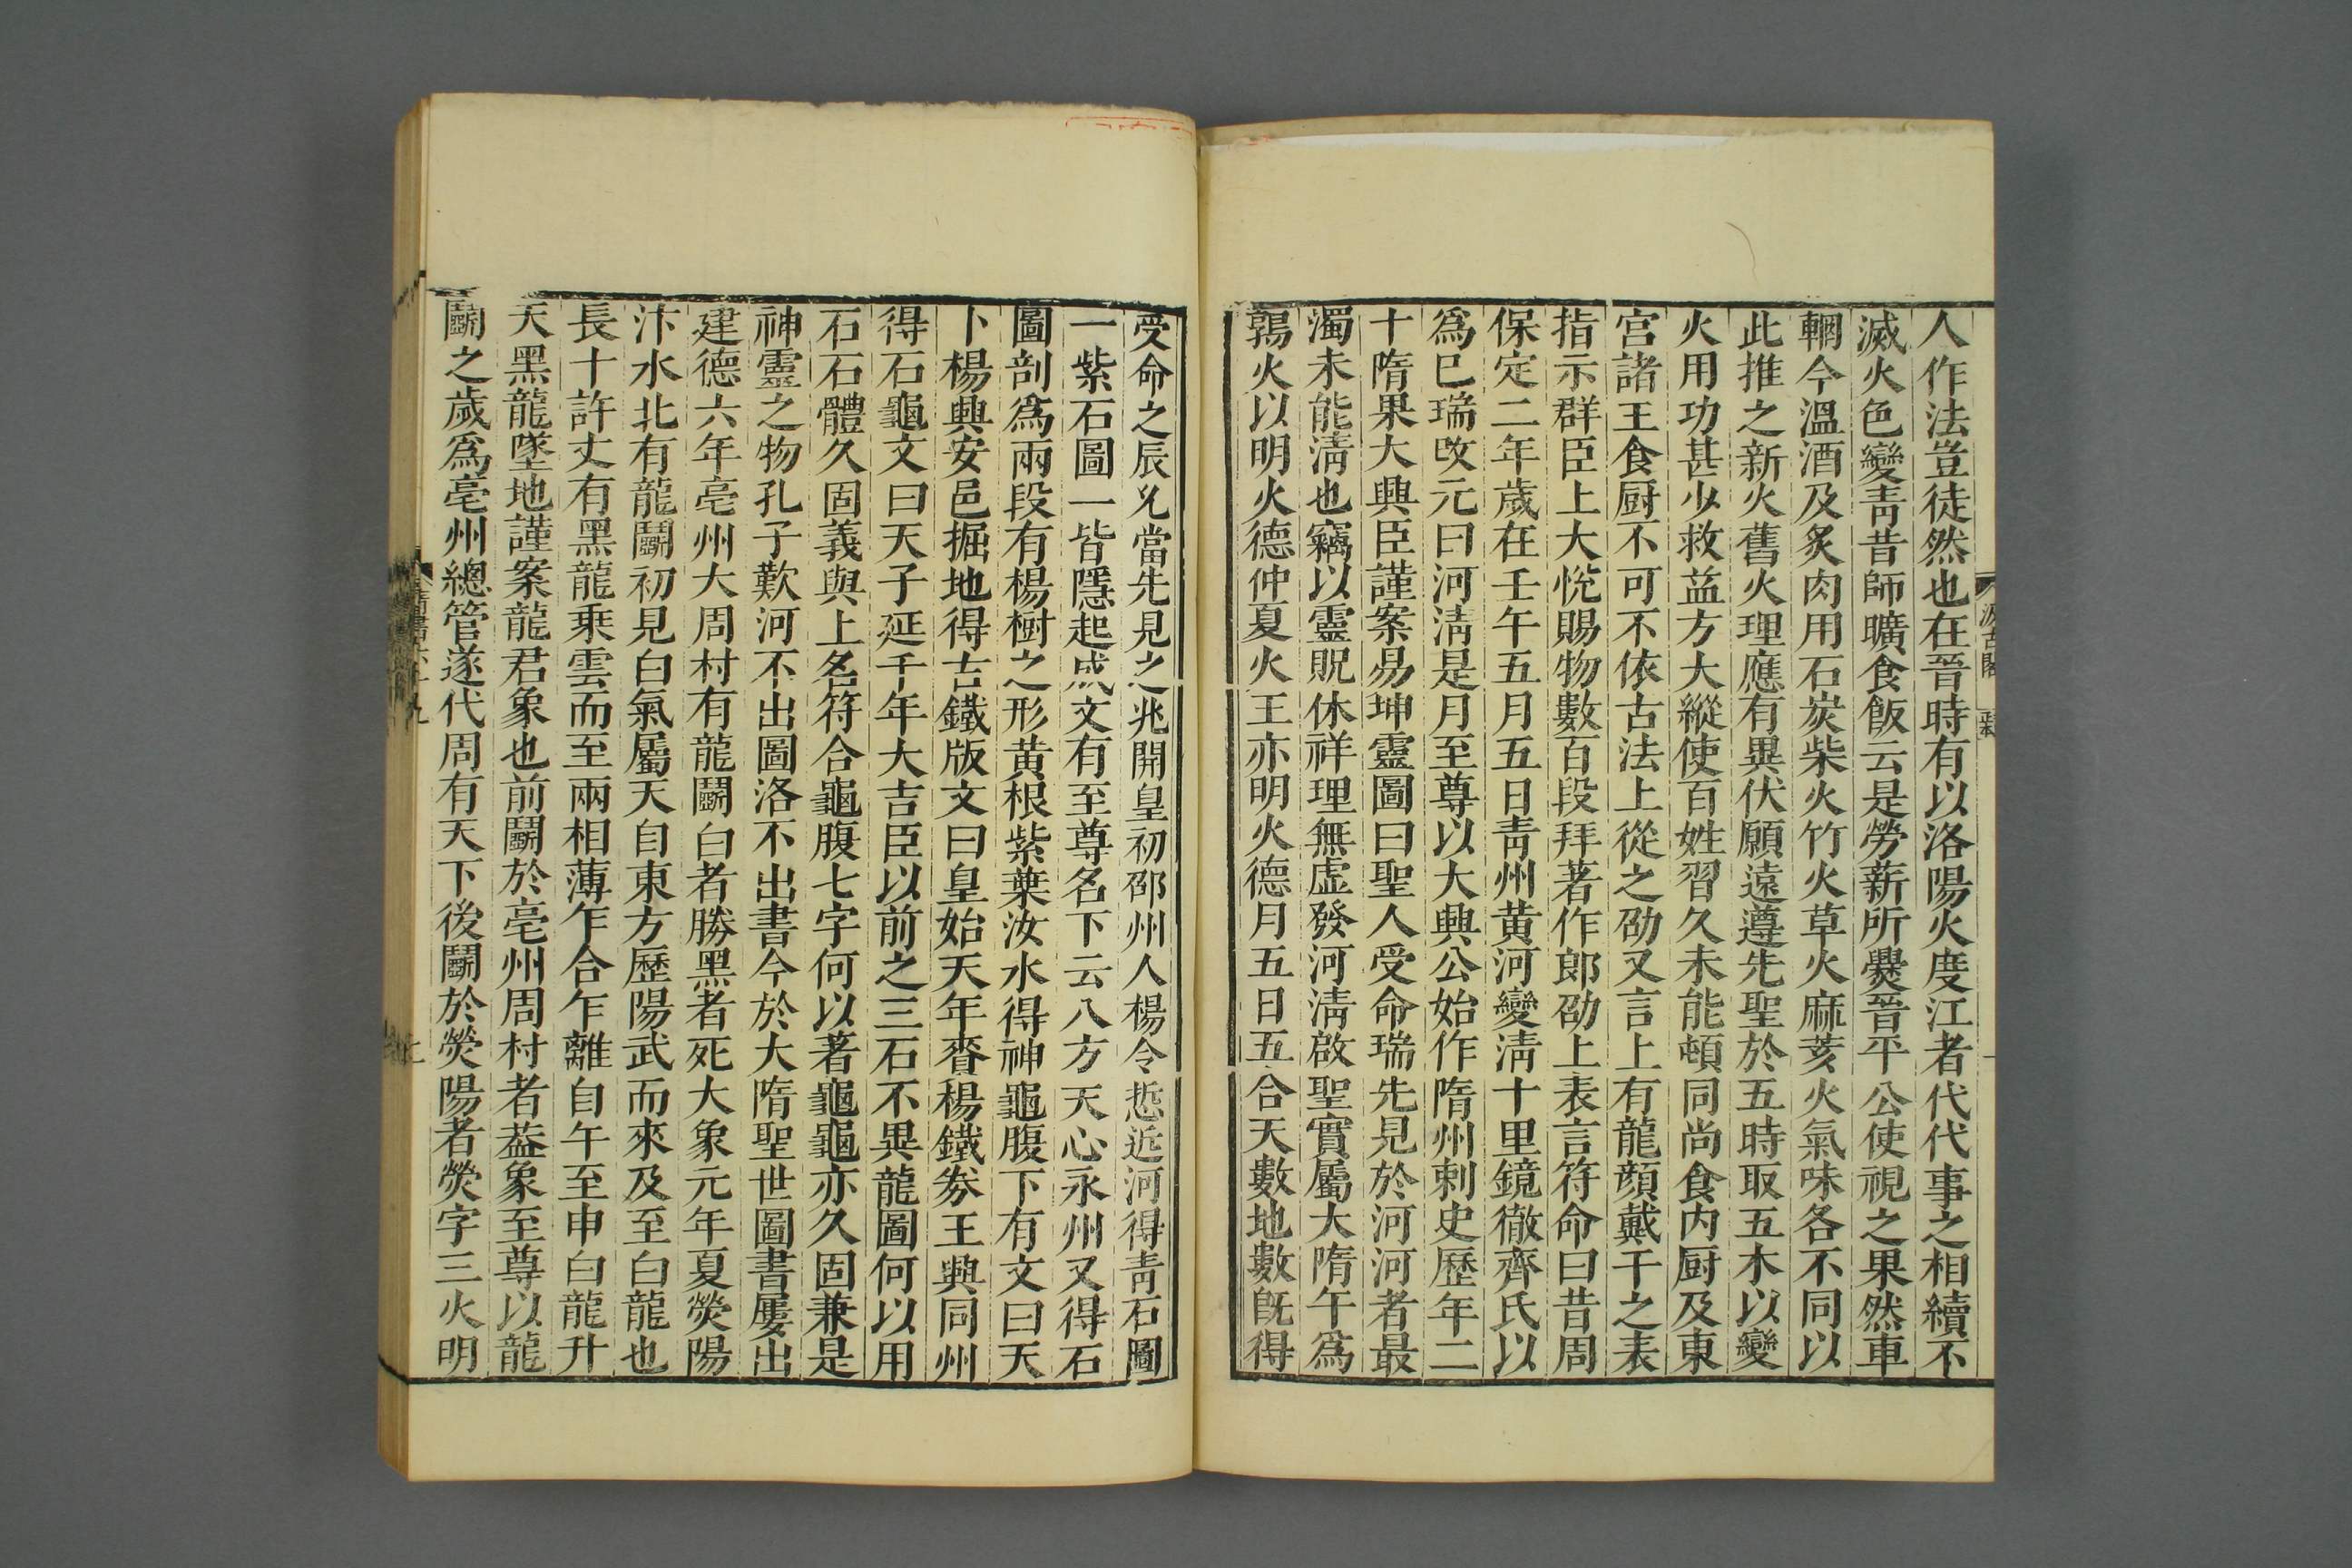 人作法豈徒然也在晉時有以洛陽火度江者代代事之相續不
滅火色變靑昔師曠食飯云是勞薪所爨晉平公使視之果然車
輞今溫酒及炙肉用石炭柴火竹火草火麻荄火氣味各不同以
此推之新火舊火理應有異伏願遠遵先聖於五時取五木以變
火用功甚少救益方大縱使百姓習久未能頓同尚食内厨及東
宮諸王食厨不可不依古法上從之劭又言上有龍顔戴干之表
指示群臣上大悅賜物數百段拜著作郎劭上表言符命曰昔周
保定二年歲在壬午五月五日靑州黄河變淸十里鏡徹齊氏以
爲已瑞改元曰河淸是月至尊以大興公始作隋州刺史歷年二
十隋果大興臣謹案易坤靈圖曰聖人受命瑞先見於河河者最
濁未能淸也竊以靈貺休祥理無虛發河淸啟聖實屬大隋午爲
鶉火以明火德仲夏火王亦明火德月五日五合天數地數旣得
受命之辰允當先見之兆開皇初邵州人楊令悊近河得靑石圖
一紫石圖一皆隱起成文有至尊名下云八方天心永州又得石
圖剖爲兩段有楊樹之形黄根紫葉汝水得神龜腹下有文曰天
卜楊興安邑掘地得古鐵版文曰皇始天年賚楊鐵劵王興同州
得石龜文曰天子延千年大吉臣以前之三石不異龍圖何以用
石石體久固義與上名符合龜腹七字何以著龜龜亦久固兼是
神靈之物孔子歎河不出圖洛不出書今於大隋聖世圖書屢出
建德六年亳州大周村有龍鬭白者勝黑者死大象元年夏熒陽
汴水北有龍鬭初見白氣屬天自東方歷陽武而來及至白龍也
長十許丈有黑龍乘雲而至兩相薄乍合乍離自午至申白龍升
天黑龍墜地謹案龍君象也前鬭於亳州周村者葢象至尊以龍
鬭之歲爲亳州總管遂代周有天下後鬭於熒陽者熒字三火明